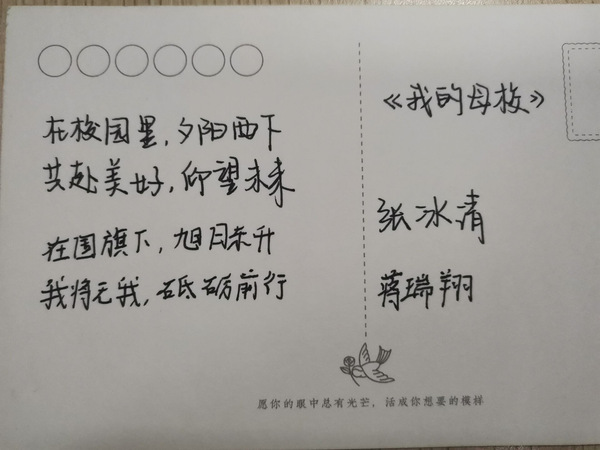 在校园里，夕阳西下
共赴美好，仰望未来
在国旗下，旭日东升
我将无我，砥砺前行
《我的母校》
张冰清
蒋瑞翔
愿你的眼中总有光芒，活成你想要的模样